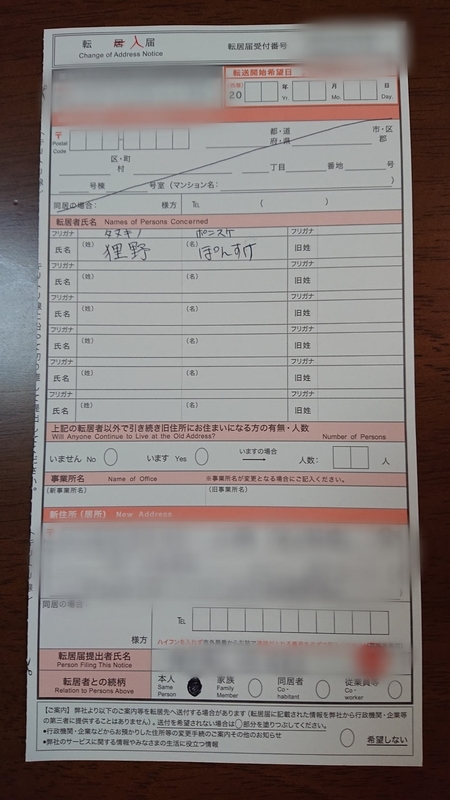 転居入届
Change of Address Notice
転居届受付番号
転送開始希望日
20 年 Yr. 月 Mo. 日 Day.
〒 Postal Code
都・道 府・県 市・区 郡
区・町 村 丁目 番地 号
号棟 号室（マンション名： ）
同居の場合： 様方 TEL （ ）
転居者氏名 Names of Persons Concerned
フリガナ タヌキノ ポンスケ フリガナ
氏名 （姓） 狸野 （名） ぽんすけ 旧姓
フリガナ フリガナ
氏名 （姓） （名） 旧姓
フリガナ フリガナ
氏名 （姓） （名） 旧姓
フリガナ フリガナ
氏名 （姓） （名） 旧姓
フリガナ フリガナ
氏名 （姓） （名） 旧姓
フリガナ フリガナ
氏名 （姓） （名） 旧姓
上記の転居者以外で引き続き旧住所にお住まいになる方の有無・人数
Will Anyone Continue to Live at the Old Address? Number of Persons
いません No います Yes いますの場合 人数： 人
事業所名 Name of Office ※事業所名が変更となる場合にご記入ください。
（新事業所名） （旧事業所名）
新住所（居所） New Address
同居の場合：
様方 TEL
転居届提出者氏名
Person Filing This Notice
転居者との続柄
Relation to Persons Above
本人 Same Person 家族 Family Member 同居者 Co-habitant 従業員等 Co-worker
【ご案内】弊社より以下のご案内等を転居先へ送付する場合があります（転居届に記載された情報を弊社から行政機関・企業等
の第三者に提供することはありません）。送付を希望されない場合は○部分を塗りつぶしてください。
●行政機関・企業などからお預かりした住所等の変更手続のご案内その他のお知らせ
●弊社のサービスに関する情報やみなさまの生活に役立つ情報
希望しない